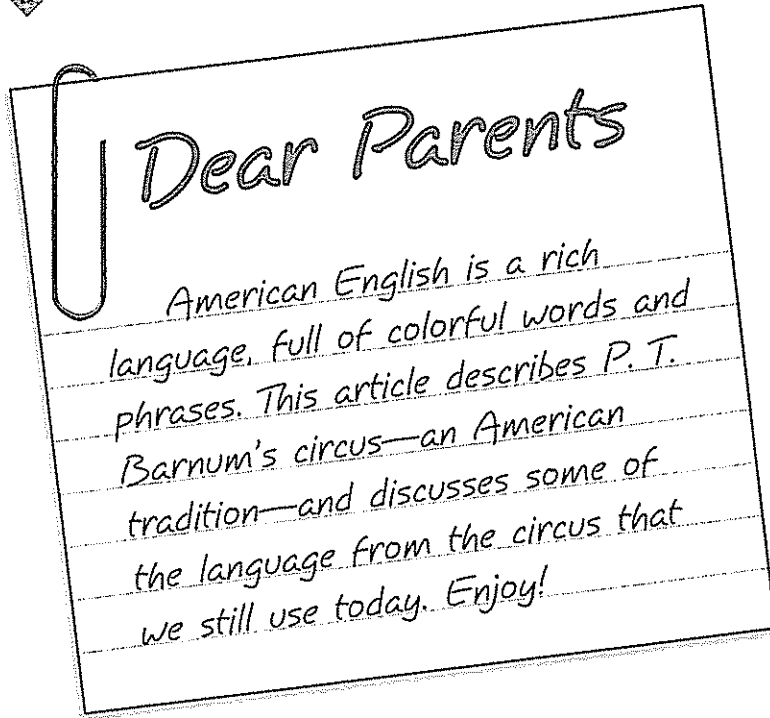 Dear Parents
American English is a rich
language, full of colorful words and
phrases. This article describes P. T.
Barnum's circus—an American
tradition—and discusses some of
the language from the circus that
we still use today. Enjoy!